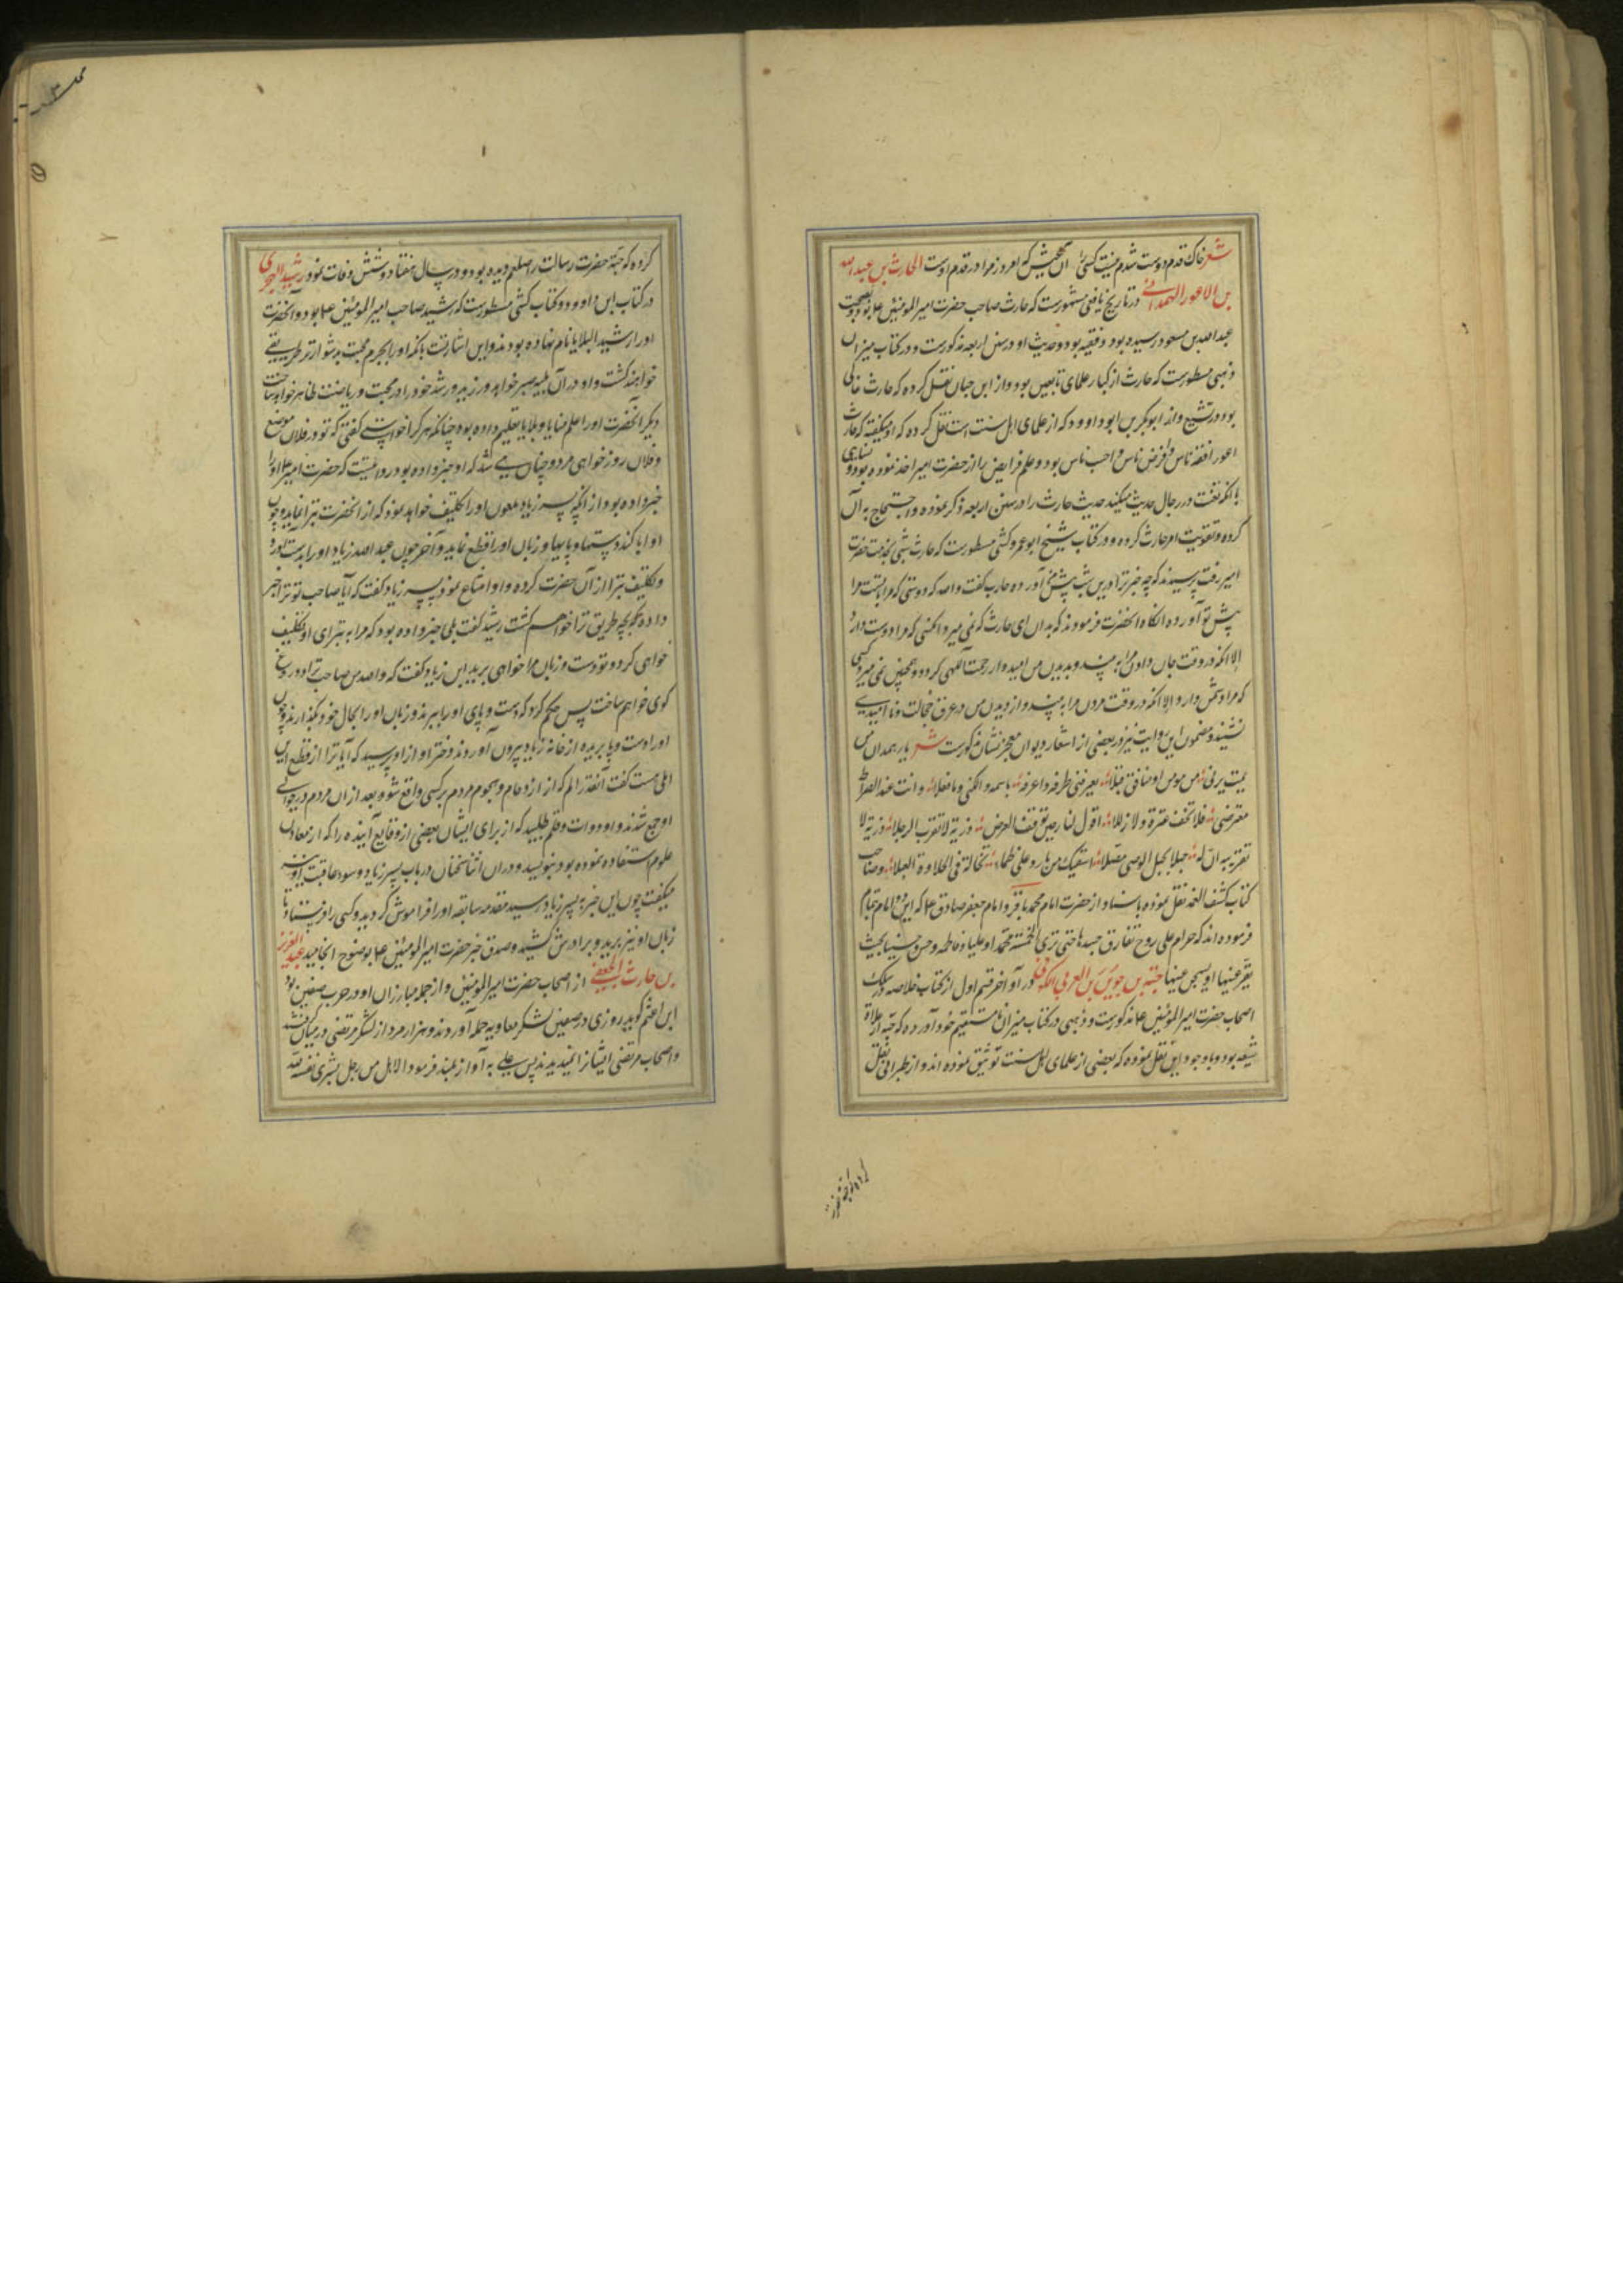 شعر خاک قدم دوست شدم نیست کسی را آن عیش که امروز مرا در قدم اوست الحارث بن عبدالله
بن الاعور الهمدانی در تاریخ یافعی مسطورست که حارث صاحب حضرت امیرالمؤمنین ع بود و بصحبت
عبدالله بن مسعود رسیده بود و فقیه بود و حدیث او در سنن اربعه مذکورست و در کتاب میزان
ذهبی مسطورست که حارث از کبار علمای تابعین بود و از ابن حبان نقل کرده که حارث غالی
بود در تشیع و از ابوبکر بن ابو داوود که از علمای اهل سنت است نقل کرده که او میگفته که حارث
اعور افقه ناس و افرض ناس و احسب ناس بود و علم فرایض را از حضرت امیر اخذ نموده بود و نسایی
با انکه تعنت در رجال حدیث میکند حدیث حارث را در سنن اربعه ذکر نموده و احتجاج به آن
کرده و تقویت امر حارث کرده و در کتاب شیخ ابو عمرو کشی مسطورست که حارث شبی بخدمت حضرت
امیر رفت پرسیدند که چه چیز ترا درین شب پیش من آورده حارث گفت والله که دوستی که مرا با تست مرا
پیش تو آورده انگاه انحضرت فرمودند که بدان ای حارث که نمی میرد انکسی که مرا دوست دارد
الا انکه در وقت جان دادن مرا به بیند و بدیدن من امیدوار رحمت الهی گردد و همچنین نمی میرد کسی
که مرا دشمن دارد الا انکه در وقت مردن مرا به بیند و از دیدن من در عرق خجالت و ناامیدی
نشیند و مضمون این روایت نیز در بعضی از اشعار دیوان معجز نشان مذکورست شعر یا حار همدان من
یمت یرنی من مومن او منافق قبلا یعرفنی طرفه و اعرفه باسمه و الکنی و ما فعلا و انت عند الصراط
معترضی فلا تخف عثرة و لا زللا اقول للنار حین توقف للعرض ذریه لا تقرب الرجلا ذریه لا
تقربیه ان له حبلا بحبل الوصی متصلا اسقیک من بارد علی ظماء تخاله فی الحلاوة العسلا و صاحب
کتاب کشف الغمه نقل نموده باسناد از حضرت امام محمد باقر و امام جعفر صادق ع که این دو امام تمام
فرموده اند که حرام علی روح تفارق جسدها حتی تری الخمسة محمدا و علیا و فاطمه و حسن و حسینا بحیث
تقر عینها او یسخن عینها حبة بن جوین العرنی الکوفی در آواخر قسم اول از کتاب خلاصه در سلک
اصحاب حضرت امیرالمؤمنین ع مذکورست و ذهبی در کتاب میزان نامستقیم خود آورده که حبه از غلاة
شیعه بود و با وجود این نقل نموده که بعضی از علمای اهل سنت توثیق نموده اند و از طبرانی نقل
کرده که حبه حضرت رسالت را صلعم دیده بود و در سال هفتاد و شش وفات نمود رشید الهجری
در کتاب ابن داوود و کتاب کشی مسطورست که رشید صاحب امیرالمؤمنین ع بود و آنحضرت
او را رشید البلایا نام نهاده بودند و این اشارتست بانکه او را بجرم محبت بدشوارتر طریقی
خواهند کشت و او در آن بلیه صبر خواهد ورزید و رشد خود را در محبت و ریاضت ظاهر خواهد ساخت
دیگر انحضرت او را علم منایا و بلایا تعلیم داده بود چنانکه هر کرا خواستی گفتی که تو در فلان موضع
و فلان روز خواهی مرد و چنان می شد که او خبر داده بود روایتست که حضرت امیر ع او را
خبر داده بود از انکه پسر زیاد ملعون او را تکلیف خواهد نمود که از انحضرت تبرا نماید و چون
او ابا کند دستها و پایها و زبان او را قطع نماید و آخر چون عبدالله زیاد او را بدست آورد
و تکلیف تبرا از آن حضرت کرده و او امتناع نمود پسر زیاد گفت که آیا صاحب تو ترا خبر
داده که بچه طریق ترا خواهم کشت رشید گفت بلی خبر داده بود که مرا به تبرای او تکلیف
خواهی کرد و تو دست و زبان مرا خواهی برید ابن زیاد گفت که والله من صاحب ترا دروغ
گوی خواهم ساخت پس حکم کرد که دست و پای او را ببرند و زبان او را بحال خود بگذارند و چون
او را دست و پا بریده از خانه زیاد بیرون آوردند دختر او از او پرسید که آیا ترا از قطع این
المی هست گفت آنقدر الم که از ازدحام و هجوم مردم بر کسی واقع شود و بعد از ان مردم در حوالی
او جمع شدند و او دوات و قلم طلبید که از برای ایشان بعضی از وقایع آینده را که از معادن
علوم استفاده نموده بود بنویسد و در ان اثنا سخنان در باب پسر زیاد و سوء عاقبت او نیز
میگفت چون این خبر به پسر زیاد رسید مقدمه سابقه او را فراموش گردید و کسی را فرستاد تا
زبان او نیز برید و بر دارش کشید و صدق خبر حضرت امیرالمؤمنین ع بوضوح انجامید عبدالعزیز
بن حارث الجعفی از اصحاب حضرت امیرالمؤمنین و از جمله مبارزان او در حرب صفین بود
ابن اعثم گوید روزی در صفین لشکر معاویه حمله آوردند و هزار مرد از لشکر مرتضی در میان گرفتند
و اصحاب مرتضی ایشانرا نمیدیدند پس علی به آواز بلند فرمود الا هل من رجل یشری نفسه لله